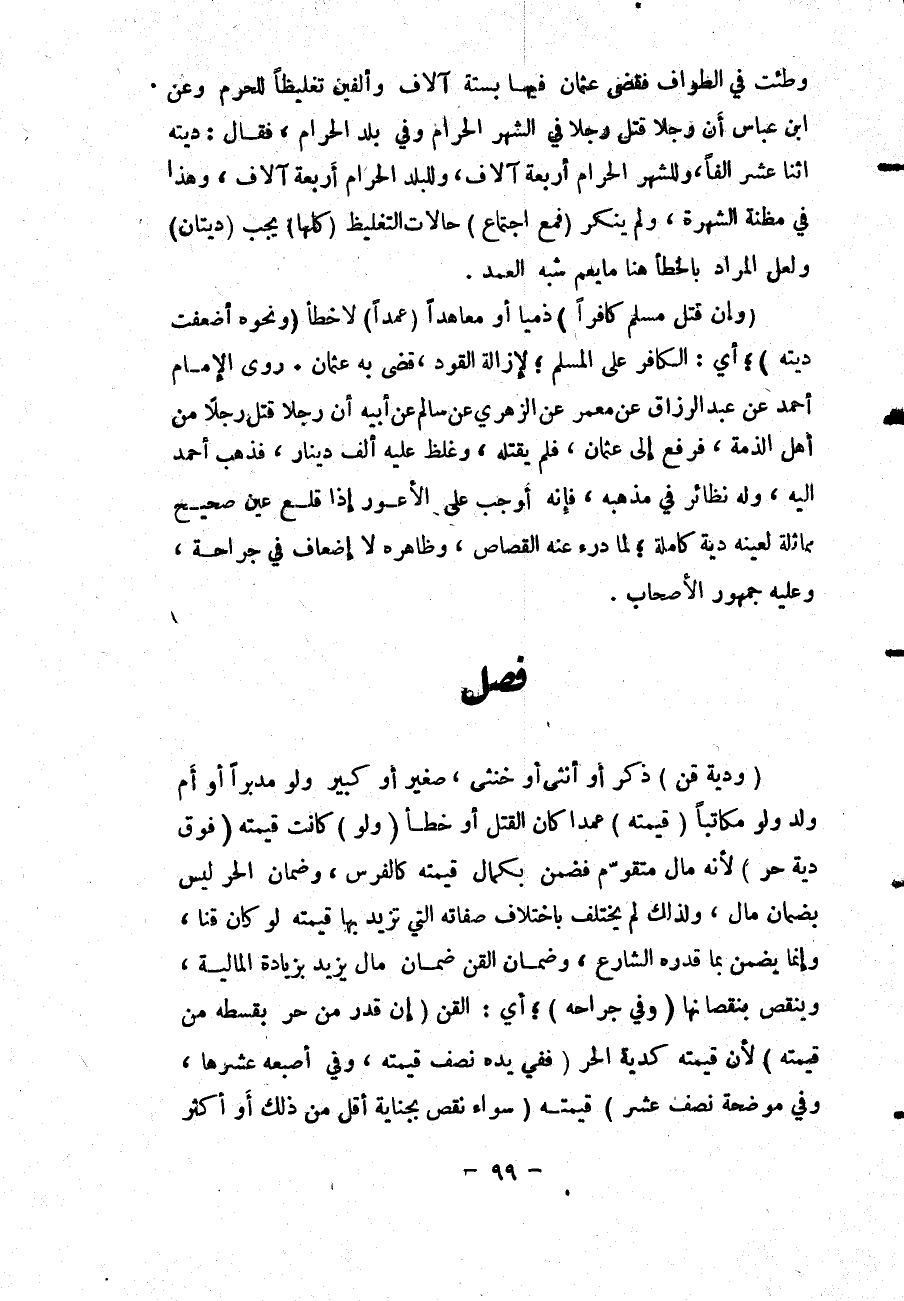 وطئت في الطواف فقضى عثمان فيها بستة آلاف وألفين تغليظاً للحرم وعن
ابن عباس أن رجلا قتل رجلا في الشهر الحرام وفي بلد الحرام ، فقال : ديته
اثنا عشر الفاً، وللشهر الحرام أربعة آلاف، وللبلد الحرام أربعة آلاف ، وهذا
في مظنة الشهرة ، ولم ينكر (فمع اجتماع ) حالات التغليظ (كلها) يجب (ديتان)
ولعل المراد بالخطأ هنا مايعم شبه العمد .
(وإن قتل مسلم كافراً ) ذميا أو معاهداً (عمداً) لاخطأ (ونحوه أضعفت
ديته ) ؛ أي : الكافر على المسلم ؛ لإزالة القود ، قضى به عثمان . روى الإمام
أحمد عن عبد الرزاق عن معمر عن الزهري عن سالم عن أبيه أن رجلا قتل رجلًا من
أهل الذمة ، فرفع إلى عثمان ، فلم يقتله ، وغلظ عليه ألف دينار ، فذهب أحمد
اليه ، وله نظائر في مذهبه ، فإنه أوجب على الأعور إذا قلع عين صحيح
مماثلة لعينه دية كاملة ؛ لما درء عنه القصاص ، وظاهره لا إضعاف في جراحة ،
وعليه جمهور الأصحاب .
فصل
( ودية قن ) ذكر أو أنثى أو خنثى ، صغير أو كبير ولو مدبراً أو أم
ولد ولو مكاتباً ( قيمته ) عمدا كان القتل أو خطأ ( ولو ) كانت قيمته ( فوق
دية حر ) لأنه مال متقوّم فضمن بكمال قيمته كالفرس ، وضمان الحر ليس
بضمان مال ، ولذلك لم يختلف باختلاف صفاته التي تزيد بها قيمته لو كان قنا ،
وإنما يضمن بما قدره الشارع ، وضمان القن ضمان مال يزيد بزيادة المالية ،
وينقص بنقصانها ( وفي جراحه ) ؛ أي : القن ( إن قدر من حر بقسطه من
قيمته ) لأن قيمته كدية الحر ( ففي يده نصف قيمته ، وفي أصبعه عشرها ،
وفي موضحة نصف عشر ) قيمته ( سواء نقص بجناية أقل من ذلك أو أكثر
- ٩٩ -